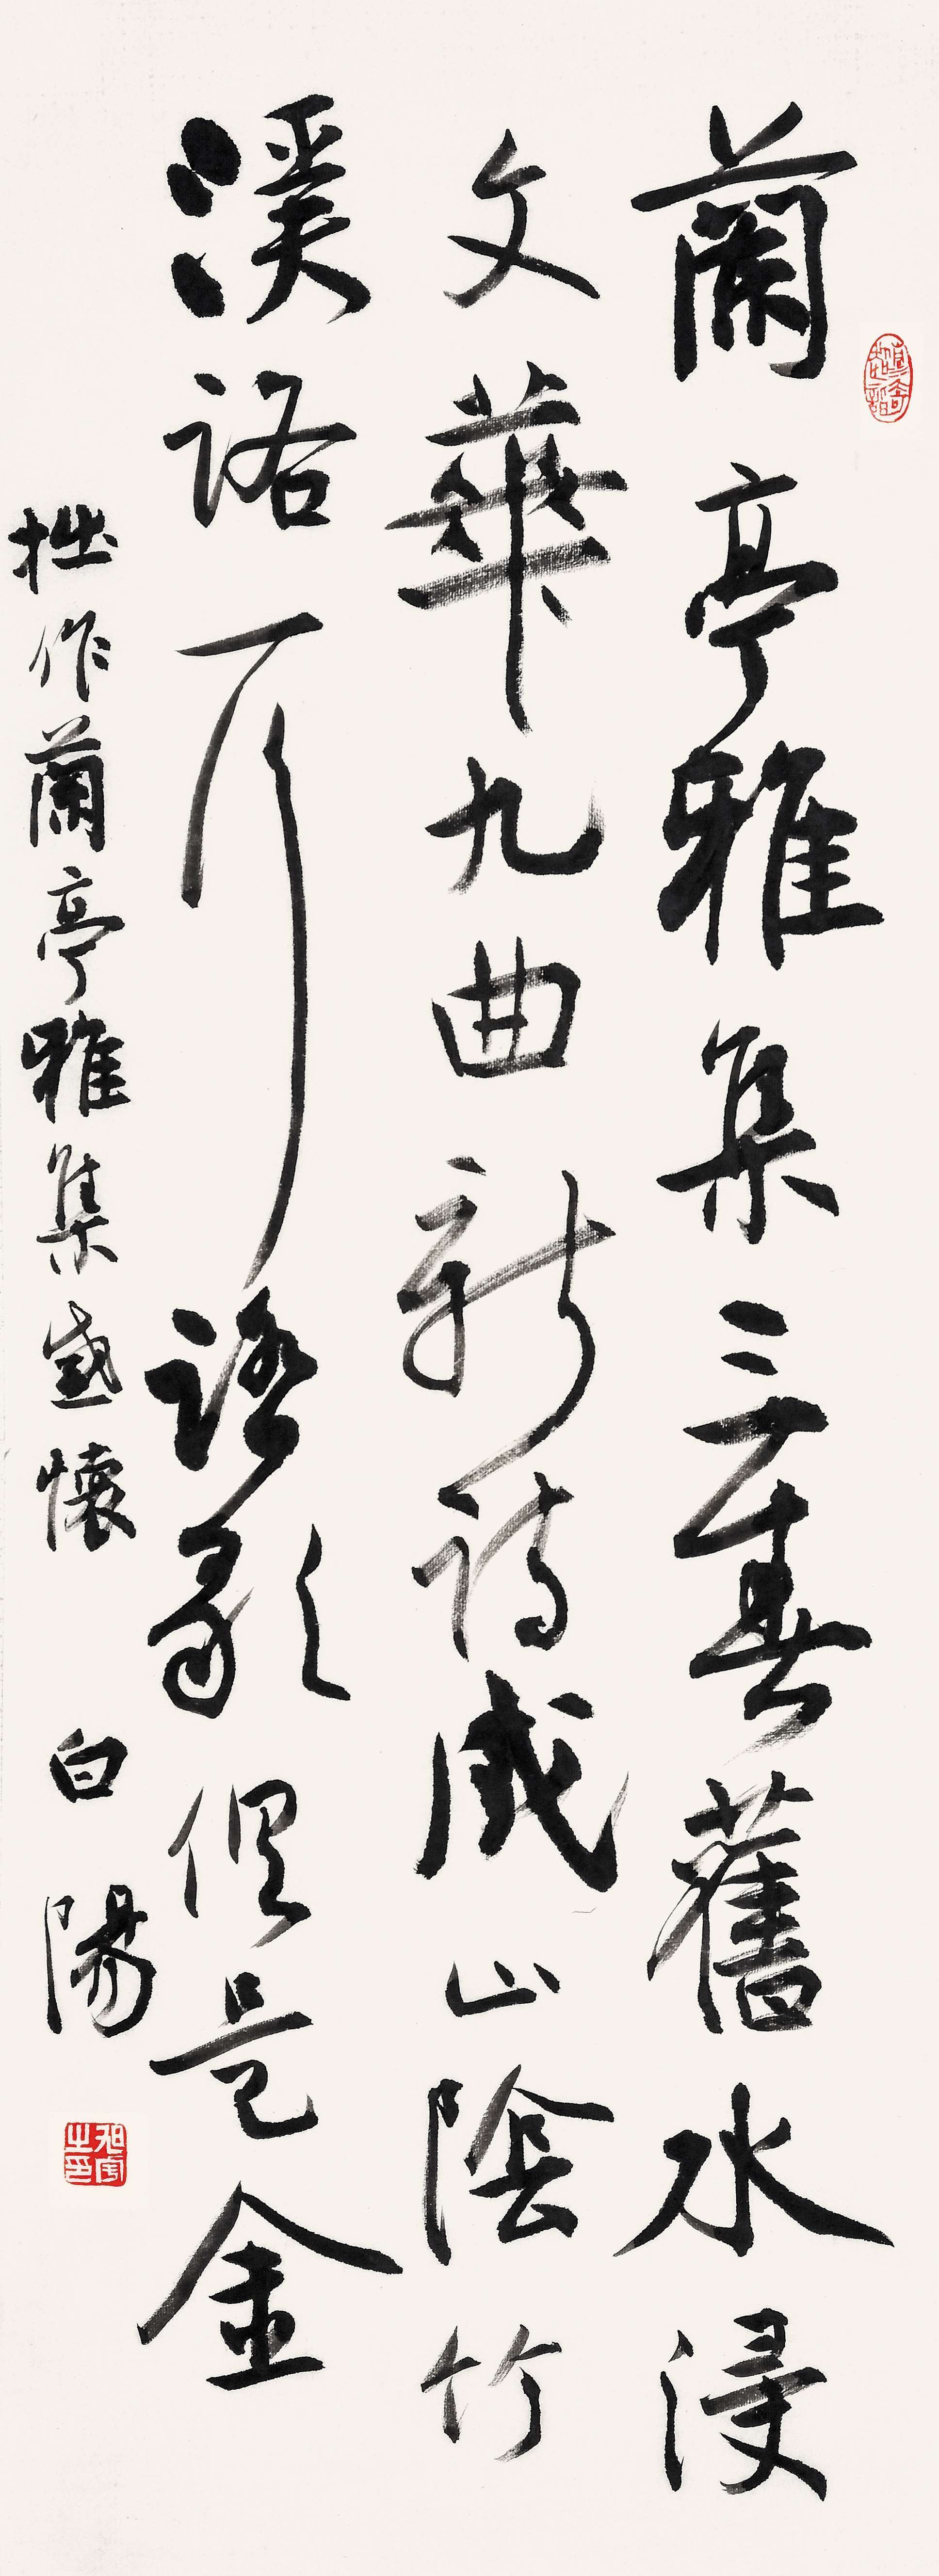 蘭亭雅集三春舊水浸
文華九曲新詩成山陰竹
溪歌俱是金
拙作蘭亭雅集感懷 白陽